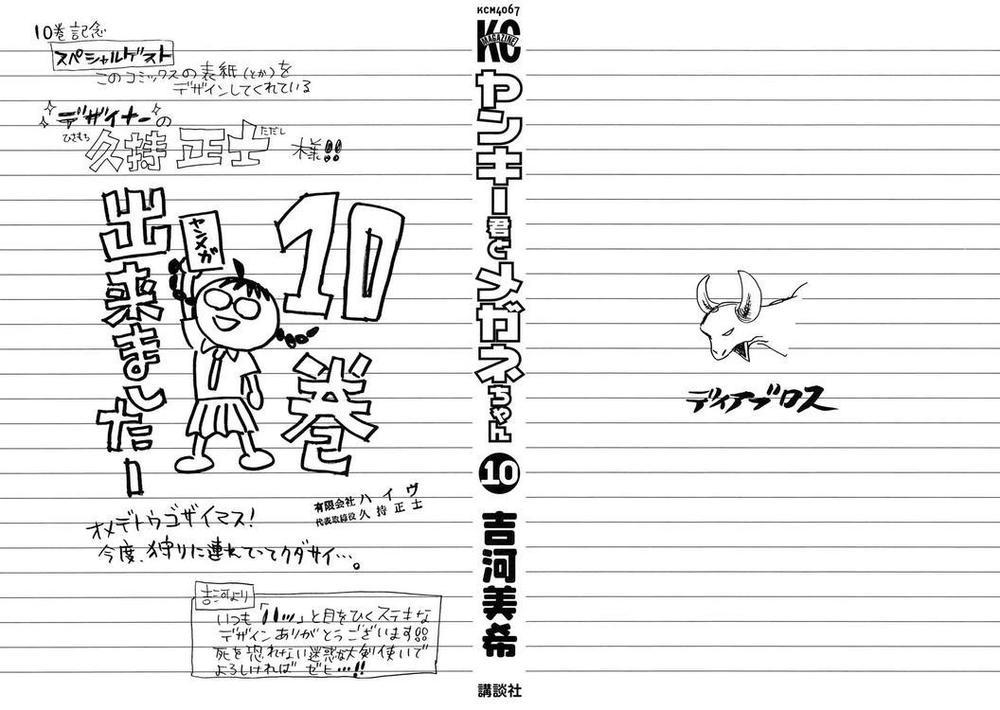 10巻記念
スペシャルゲスト
このコミックスの表紙(とか)を
デザインしてくれている
デザイナーの
ひさもち ただし
久持 正士 様!!
10巻
出来ましたー
ヤンメガ
有限会社 ハイヴ
代表取締役 久持正士
オメデトウゴザイマス!
今度、狩りに連れてってクダサイ…。
吉河より
いつも「ハッ」と目をひくステキな
デザインありがとうございます!!
死を恐れない迷惑な大剣使いで
よろしければ ゼヒ…!!
KCM4067
KC
MAGAZINE
ヤンキー君とメガネちゃん
10
吉河美希
講談社
ディアブロス